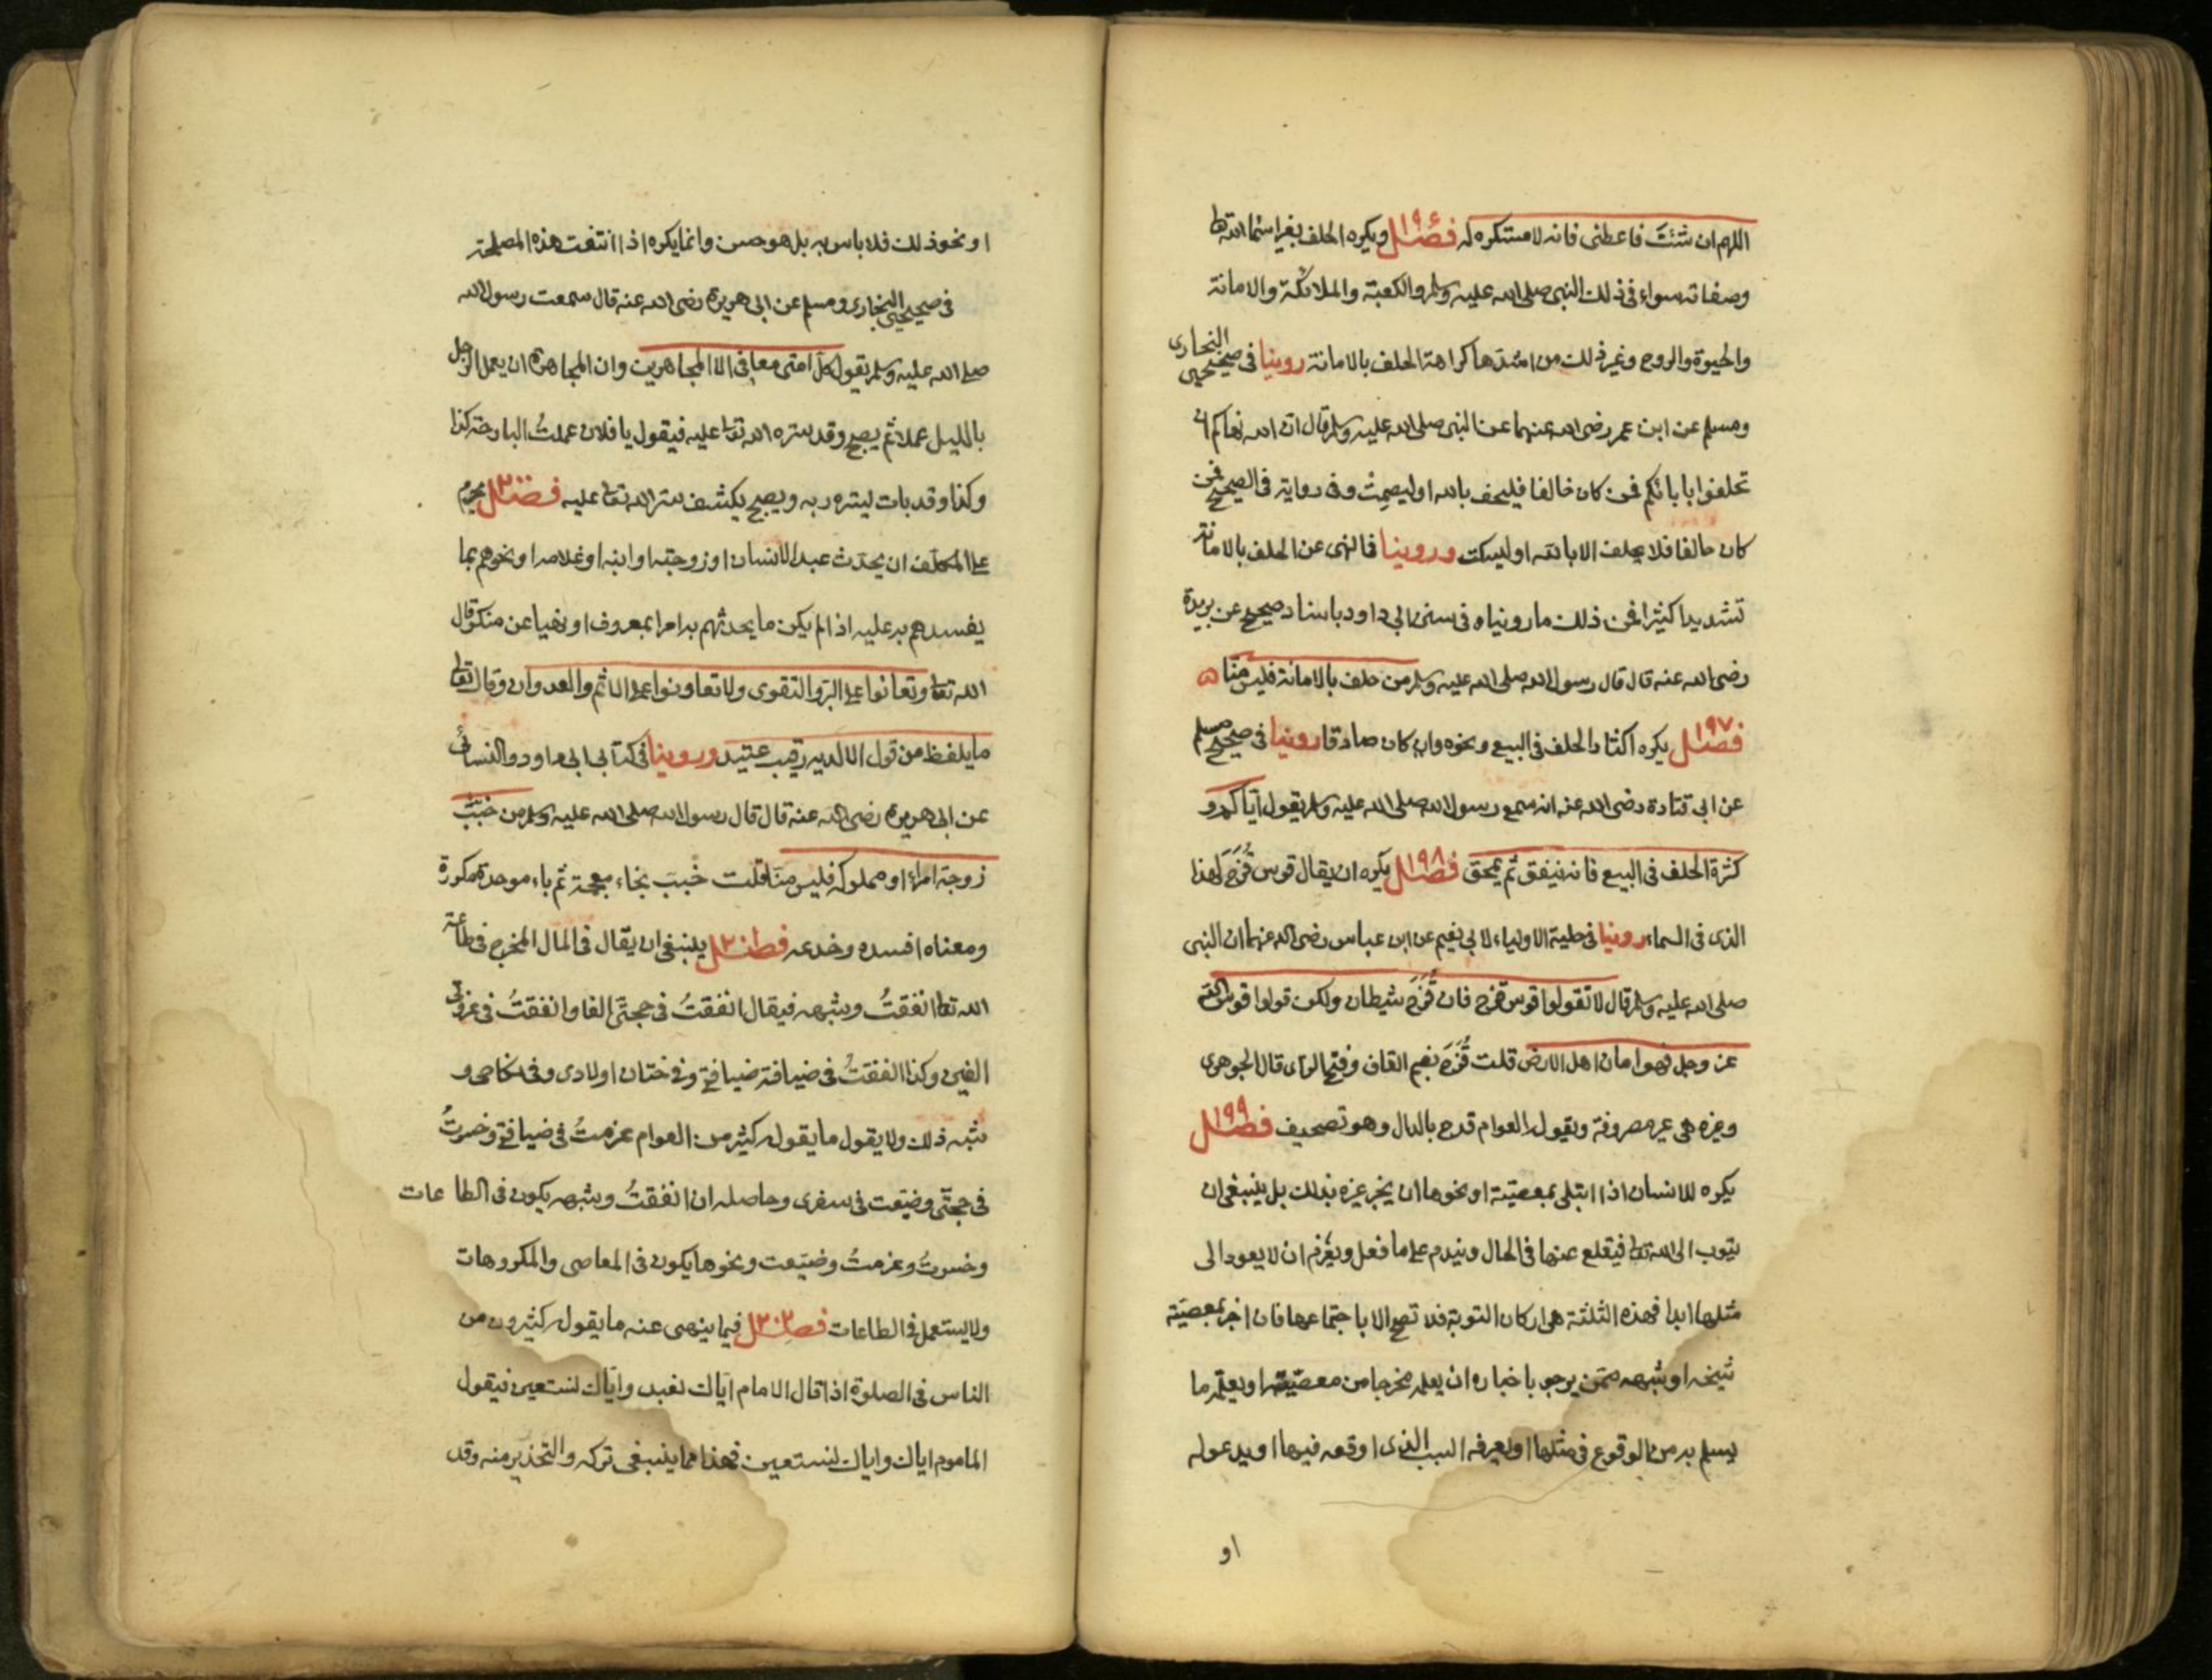 اللهم ان شئت فاعطنى فانه لا مستكره له فصل ١٩٤ ويكره الحلف بغير اسماء الله تعا
وصفاته سواء فى ذلك النبى صلى الله عليه وسلم والكعبة والملائكة والامانة
والحيوة والروح وغير ذلك من اشدها كراهة الحلف بالامانة روينا فى صحيحى البخارى
ومسلم عن ابن عمر رضى الله عنهما عن النبى صلى الله عليه وسلم قال ان الله نهاكم ان
تحلفوا بابائكم فمن كان حالفا فليحلف بالله او ليصمت وفى رواية فى الصحيح فمن
كان حالفا فلا يحلف الا بالله او ليسكت وروينا فى النهى عن الحلف بالامانة
تشديدا كثيرا فمن ذلك ما رويناه فى سنن ابى داود باسناد صحيح عن بريدة
رضى الله عنه قال قال رسول الله صلى الله عليه وسلم من حلف بالامانة فليس منا
فصل ١٩٧ يكره اكثار الحلف فى البيع ونحوه وان كان صادقا روينا فى صحيح مسلم
عن ابى قتادة رضى الله عنه انه سمع رسول الله صلى الله عليه وسلم يقول اياكم و
كثرة الحلف فى البيع فانه ينفق ثم يمحق فصل ١٩٨ يكره ان يقال قوس قزح لهذا
الذى فى السماء روينا فى حلية الاولياء لابى نعيم عن ابن عباس رضى الله عنهما ان النبى
صلى الله عليه وسلم قال لا تقولوا قوس قزح فان قزح شيطان ولكن قولوا قوس الله
عز وجل فهو امان اهل الارض قلت قزح بضم القاف وفتح الزاى قال الجوهرى
وغيره هى غير مصروفة ويقول العوام قدح بالدال وهو تصحيف فصل ١٩٩
يكره للانسان اذا ابتلى بمعصية او نحوها ان يخبر غيره بذلك بل ينبغى ان
يتوب الى الله تعا فيقلع عنها فى الحال ويندم على ما فعل ويعزم ان لا يعود الى
مثلها ابدا فهذه الثلثة هى اركان التوبة فلا تصح الا باجتماعها فان اخبر بمعصية
شيخه او شبهه ممن يرجو باخباره ان يعلمه مخرجا من معصيته او يعلمه ما
يسلم به من الوقوع فى مثلها او يعرفه السبب الذى اوقعه فيها او يدعو له
او
او نحو ذلك فلا باس به بل هو حسن وانما يكره اذا انتفت هذه المصلحة
فى صحيحى البخارى ومسلم عن ابى هريرة رضى الله عنه قال سمعت رسول الله
صلى الله عليه وسلم يقول كل امتى معافى الا المجاهرين وان المجاهرة ان يعمل الرجل
بالليل عملا ثم يصبح وقد ستره الله تعا عليه فيقول يا فلان عملت البارحة كذا
وكذا وقد بات يستره ربه ويصبح يكشف ستر الله تعا عليه فصل ٢٠٠ يحرم
على المكلف ان يحدث عبد الانسان او زوجته او ابنه او غلامه او نحوهم بما
يفسدهم به عليه اذا لم يكن ما يحدثهم به امرا بمعروف او نهيا عن منكر قال
الله تعا وتعانوا على البر والتقوى ولا تعاونوا على الاثم والعدوان وقال تعا
ما يلفظ من قول الا لديه رقيب عتيد وروينا فى كتابى ابى داود والنسائى
عن ابى هريرة رضى الله عنه قال قال رسول الله صلى الله عليه وسلم من خبب
زوجة امرء او مملوكه فليس منا قلت خبب بخاء معجمة ثم باء موحدة مكررة
ومعناه افسده وخدعه فصل ٢٠١ ينبغى ان يقال فى المال المخرج فى طاعة
الله تعا انفقت وشبهه فيقال انفقت فى حجتى الفا وانفقت فى غزوتى
الفين وكذا انفقت فى ضيافة ضيافة وفى ختان اولادى وفى نكاحى و
شبه ذلك ولا يقول ما يقوله كثير من العوام غرمت فى ضيافة وخسرت
فى حجتى وضيعت فى سفرى وحاصله ان انفقت وشبهه يكون فى الطاعات
وخسرت وغرمت وضيعت ونحوها يكون فى المعاصى والمكروهات
ولا يستعمل فى الطاعات فصل ٢٠٢ فيما ينهى عنه ما يقوله كثيرون من
الناس فى الصلوة اذا قال الامام اياك نعبد واياك نستعين فيقول
الماموم اياك واياك نستعين فهذا مما ينبغى تركه والتحذير منه وقد